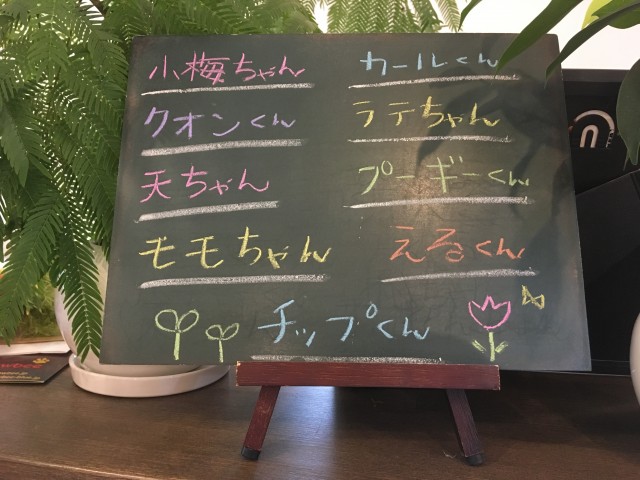 小梅ちゃん
カールくん
クオンくん
ラテちゃん
天ちゃん
プーギーくん
モモちゃん
えるくん
チップくん